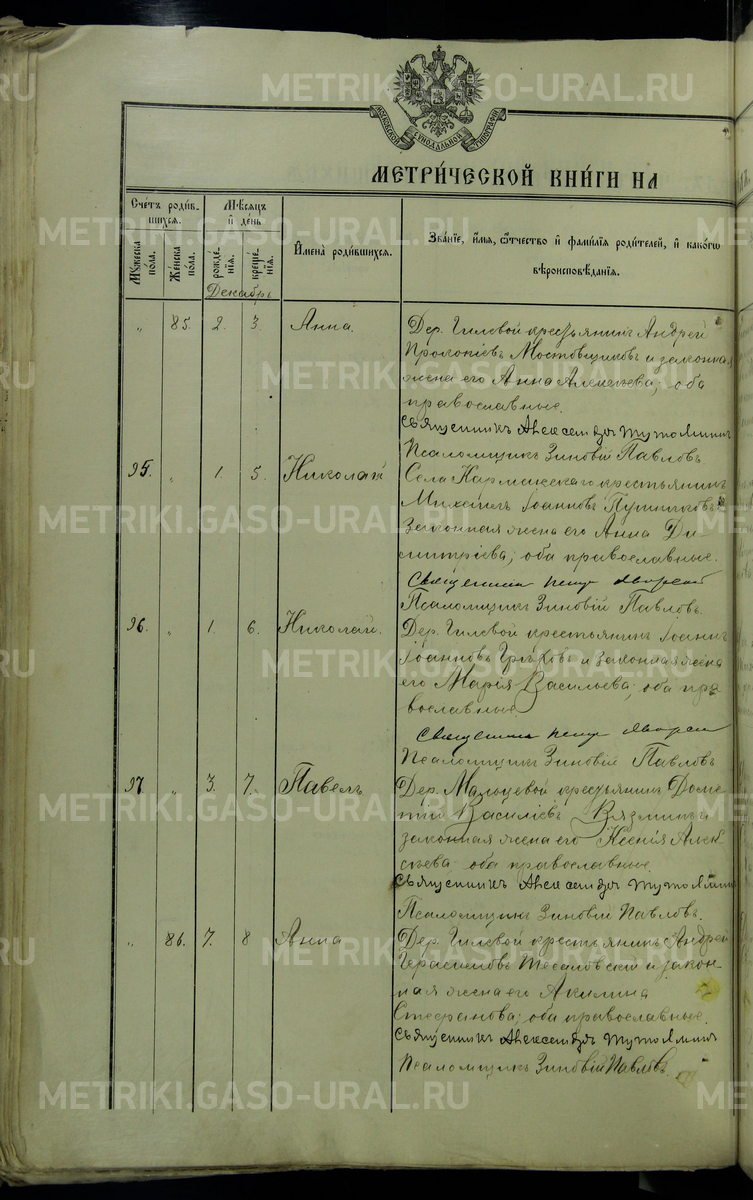 МОСКОВСКОЙ СѴНОДАЛЬНОЙ ТИПОГРАФІИ
МЕТРИ́ЧЕСКОЙ КНИ́ГИ НА
Сче́тъ роди́в-
шихся.
Му́жеска
по́ла.
Же́нска
по́ла.
Мѣ́сяцъ
и́ де́нь
рожде́-
нїя.
креще́-
нїя.
Декабрь
И҆мена̀ роди́вшихся.
Зва́нїе, и҆́мя, ѻ҆́тчество и҆ фами́лїя роди́телей, и҆ како́гѡ
вѣроисповѣ́данїя.
„ 85. 2. 3. Анна. Дер. Гилевой крестьянинъ Андрей
Прокопіевъ Мостовщиковъ и законная
жена его Анна Алексѣева; оба
православные.
Священникъ Александръ
Псаломщикъ Зиновій Павловъ.
95. „ 1. 5. Николай Села крестьянинъ
Михаилъ Іоанновъ
Законная жена его Анна Ди-
митріева; оба православные.
Священникъ
Псаломщикъ Зиновій Павловъ.
96. „ 1. 6. Николай. Дер. Гилевой крестьянинъ Іоаннъ
Іоанновъ и законная жена
его Марія Васильева; оба пра-
вославные.
Священникъ
Псаломщикъ Зиновій Павловъ
97 „ 3. 7. Павелъ Дер. Мальцевой крестьянинъ Доме-
тій Василіевъ и
законная жена его Ксенія Алек-
сѣева оба православные.
Священникъ Александръ
Псаломщикъ Зиновій Павловъ.
„ 86. 7. 8 Анна Дер. Гилевой крестьянинъ Андрей
Герасимовъ и закон-
ная жена его Акилина
Стефанова; оба православные.
Священникъ Александръ
Псаломщикъ Зиновій Павловъ.
METRIKI.GASO-URAL.RU